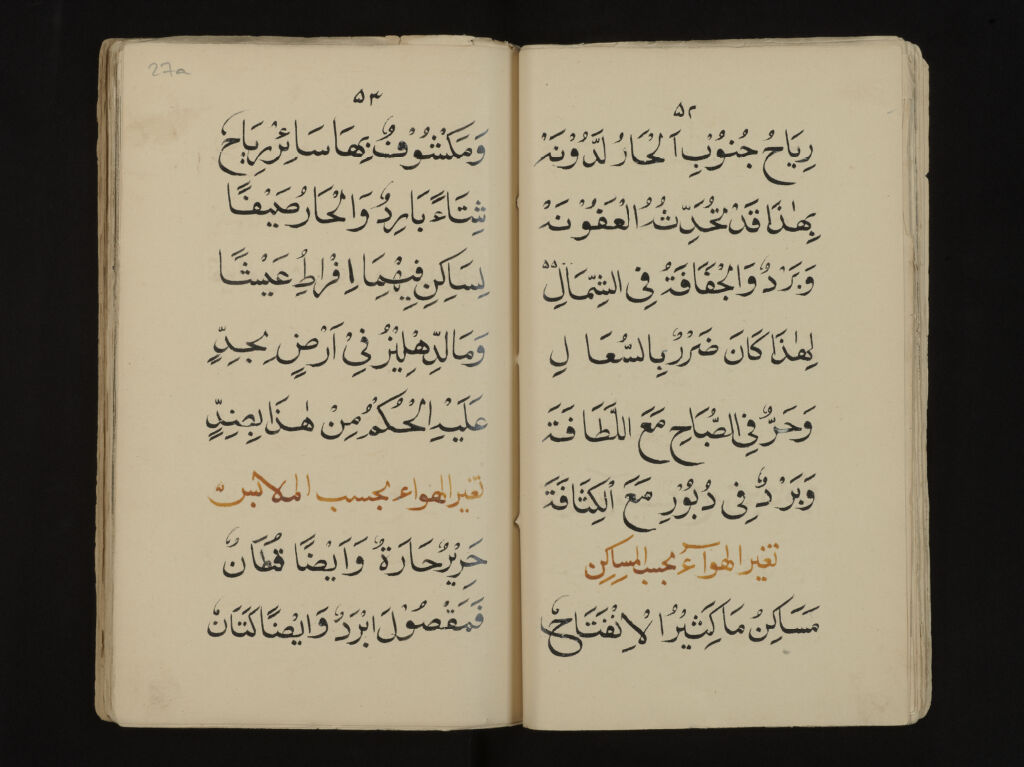 ٥٢
رِيَاحُ جُنُوْبِ اَلْحَارُ لَدَّوْنَهْ
بِهٰذَا قَدْ تُحَدِّثُهُ الْعَفُوْنَهْ
وَبَرْدٌ وَالْجَفَافَةُ فِى الشِّمَالِ
لِهٰذَا كَانَ ضَرَرٌ بِالسُّعَالِ
وَحَرٌّ فِى الصَّبَاحِ مَعَ اللَّطَافَةَ
وَبَرْدٌ فِى دُبُوْرٍ مَعَ الْكِثَافَةَ
تغير الهوآء بحسب المساكن
مَسَاكِنُ مَا كَثِيْرُ الْاِنْفِتَاحُ
٥٣
وَمَكْشُوْفٌ بِهَا سَائِرْ رِيَاحٌ
شِتَاءً بَارِدٌ وَالْحَارُ صَيْفًا
لِسَاكِنِ فِيْهِمَا اِفْرَاطِ عَيْشًا
وَمَا الدِّهْلِيْزُ فِىْ اَرْضٍ بِجِدٍّ
عَلَيْهِ الْحُكْمُ مِنْ هٰذَا بِضِدٍّ
تغير الهواء بحسب الملابس
حَرِيْرٌ حَارَةٌ وَاَيْضًا قُطَانٌ
فَمَقْصُوْلَ ابْرَدٌ وَايْضًا كَتَانٌ
27a